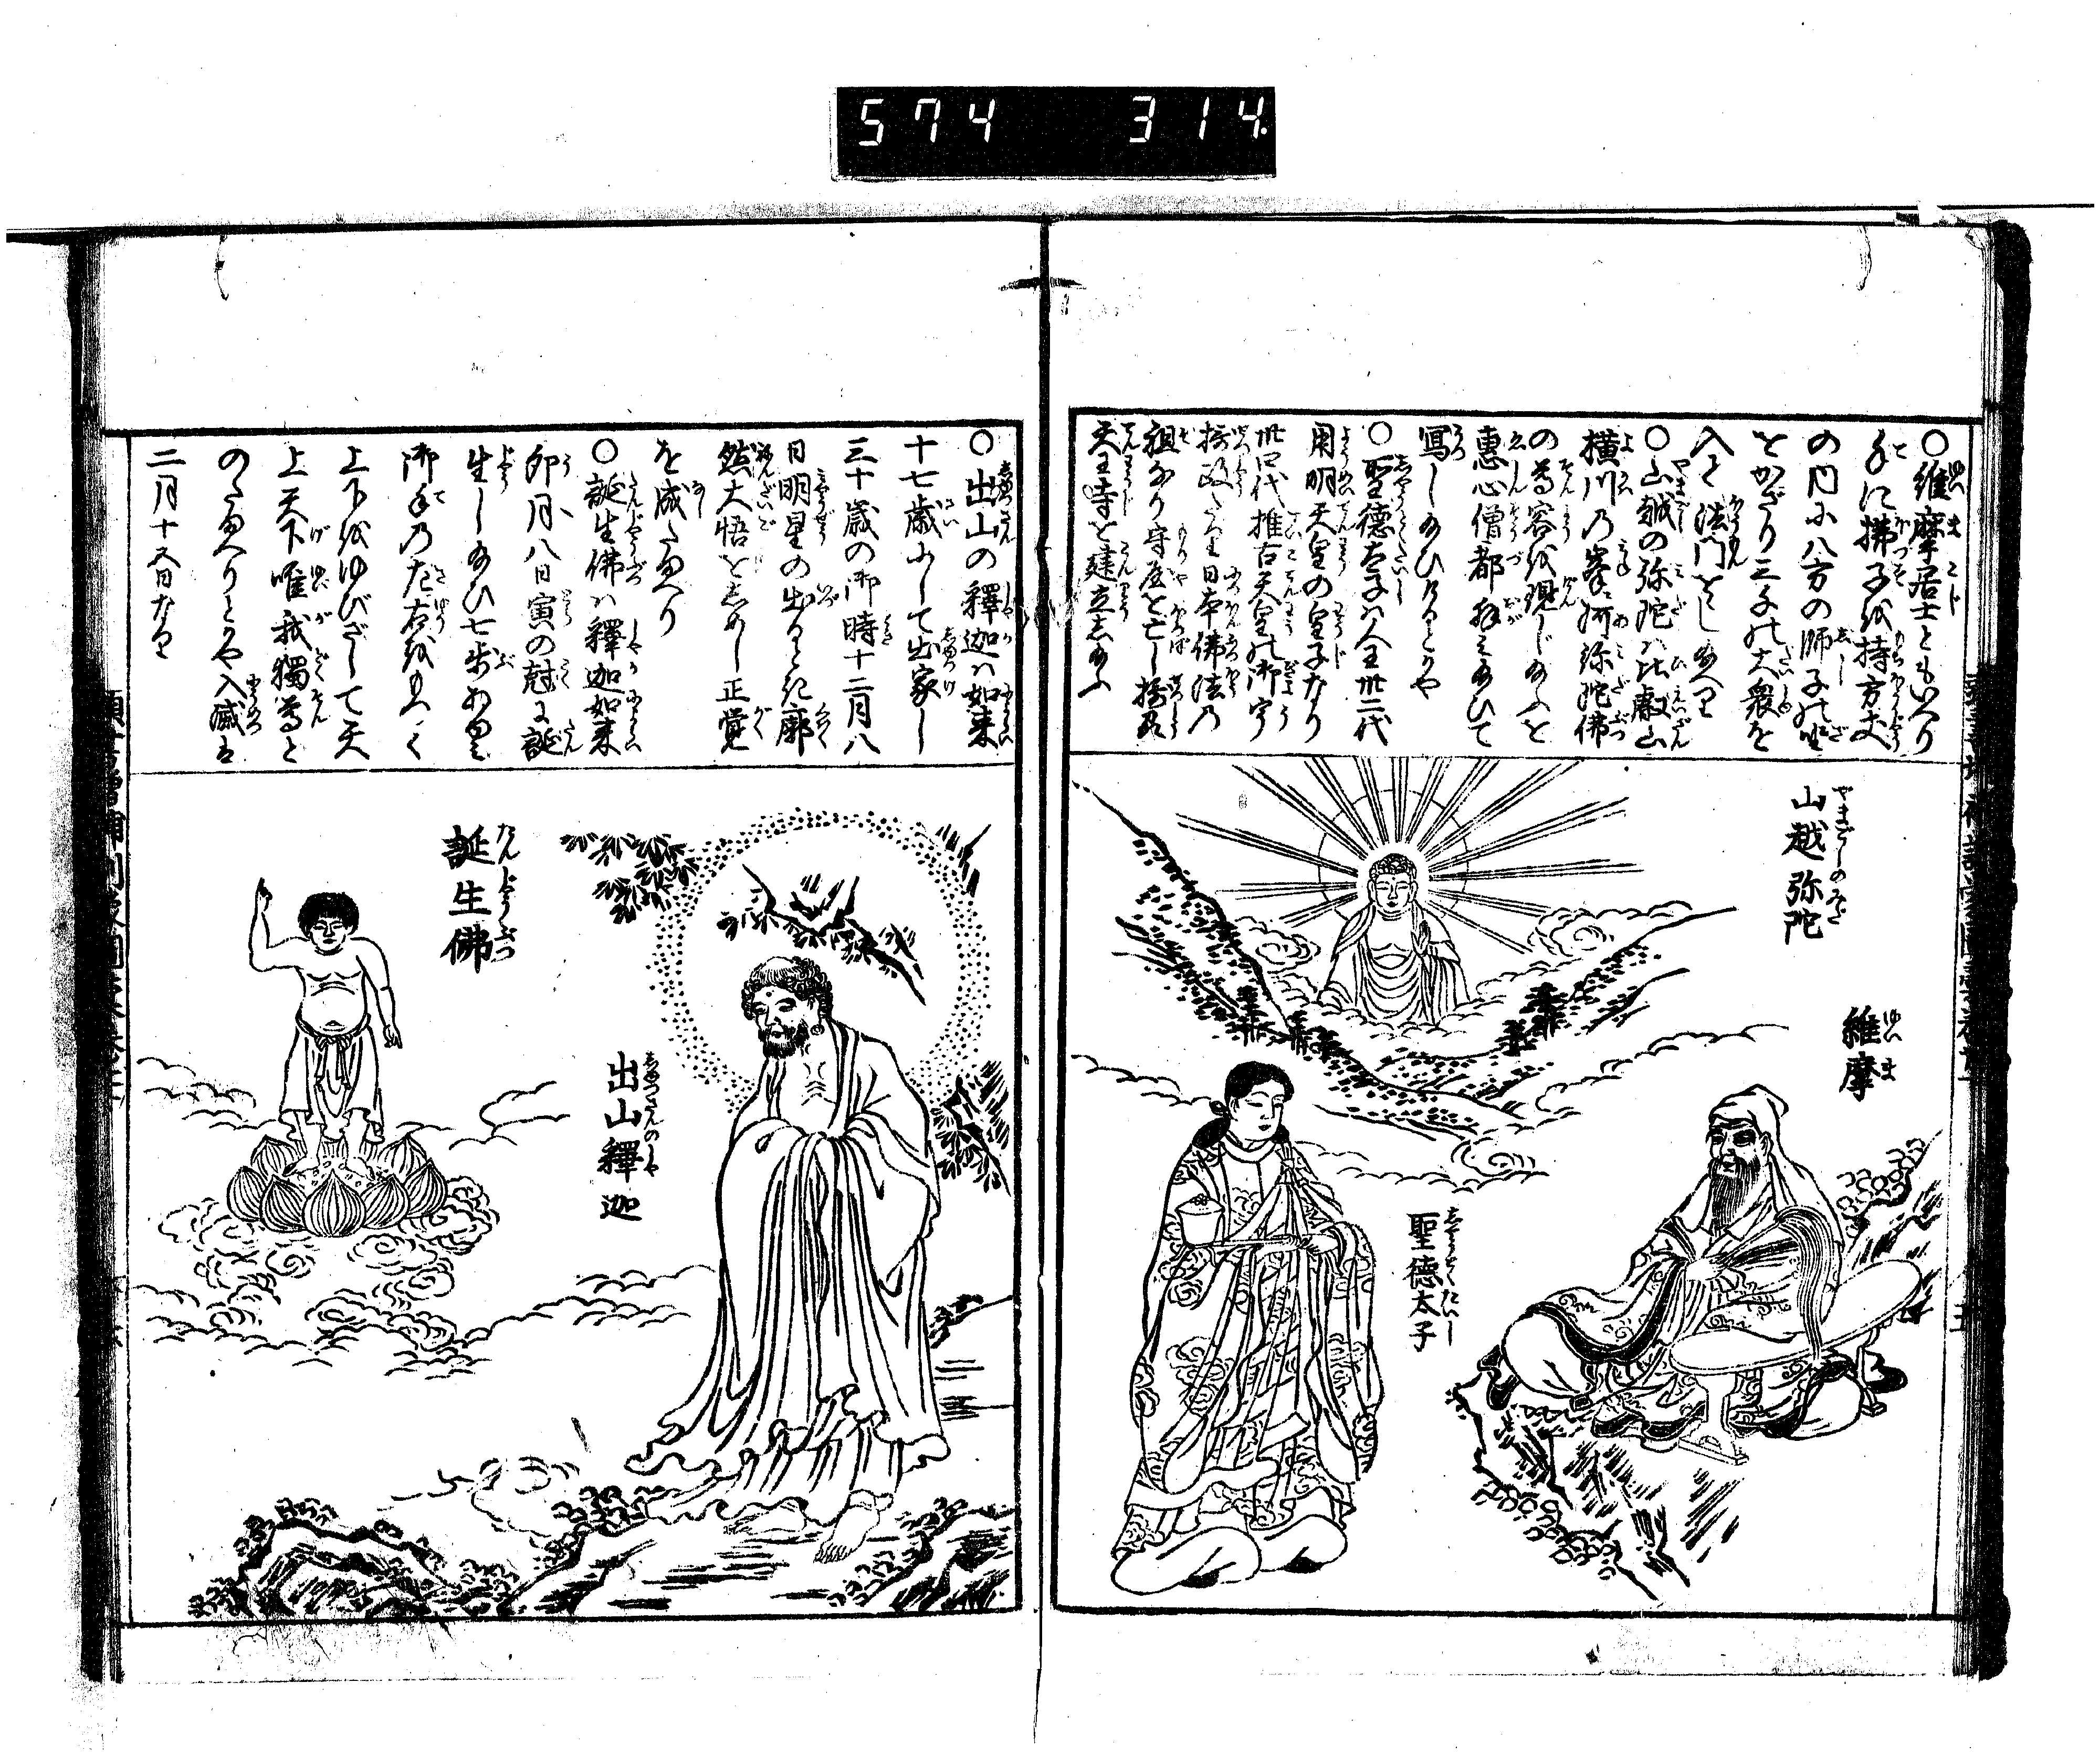 574 314.
○維摩居士ともいへり
手に拂子を持方丈
の内に八方の師子の坐
をかざり三千の大衆を
入て法門をとし給へり
○山越の弥陀は比叡山
横川の峯に阿弥陀佛
の尊容を現じ給ふを
惠心僧都拝み給ひて
寫し給ひけるとかや
○聖德太子は人王卅二代
用明天皇の皇子なり
卅四代推古天皇の御宇
摂政したまひ日本佛法の
祖なり守屋を亡し摂州
天王寺を建立し給ふ
山越弥陀
やまごしのみだ
維摩
ゆいま
聖德太子
しやうとくたいし
○出山の釋迦は如来
十七歳にして出家し
三十歳の御時十二月八
日明星の出るとき廓
然大悟としめし正覚
を成たまへり
○誕生佛は釋迦如来
卯月八日寅の尅に誕
生し給ひ七歩あゆみ
御手の左右をもつて
上下をゆびざして天
上天下唯我獨尊と
のたまへりとかや入滅は
二月十五日なり
誕生佛
たんじやうぶつ
出山釋迦
しゆつさんのしやか